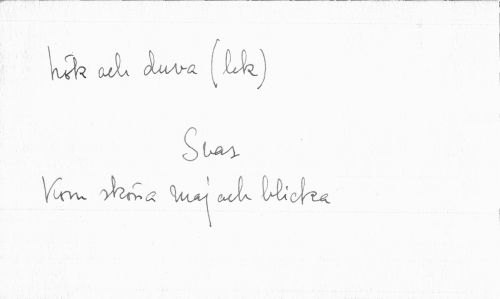 hök och duva (lek)
Svar
Kom sköna maj och blicka